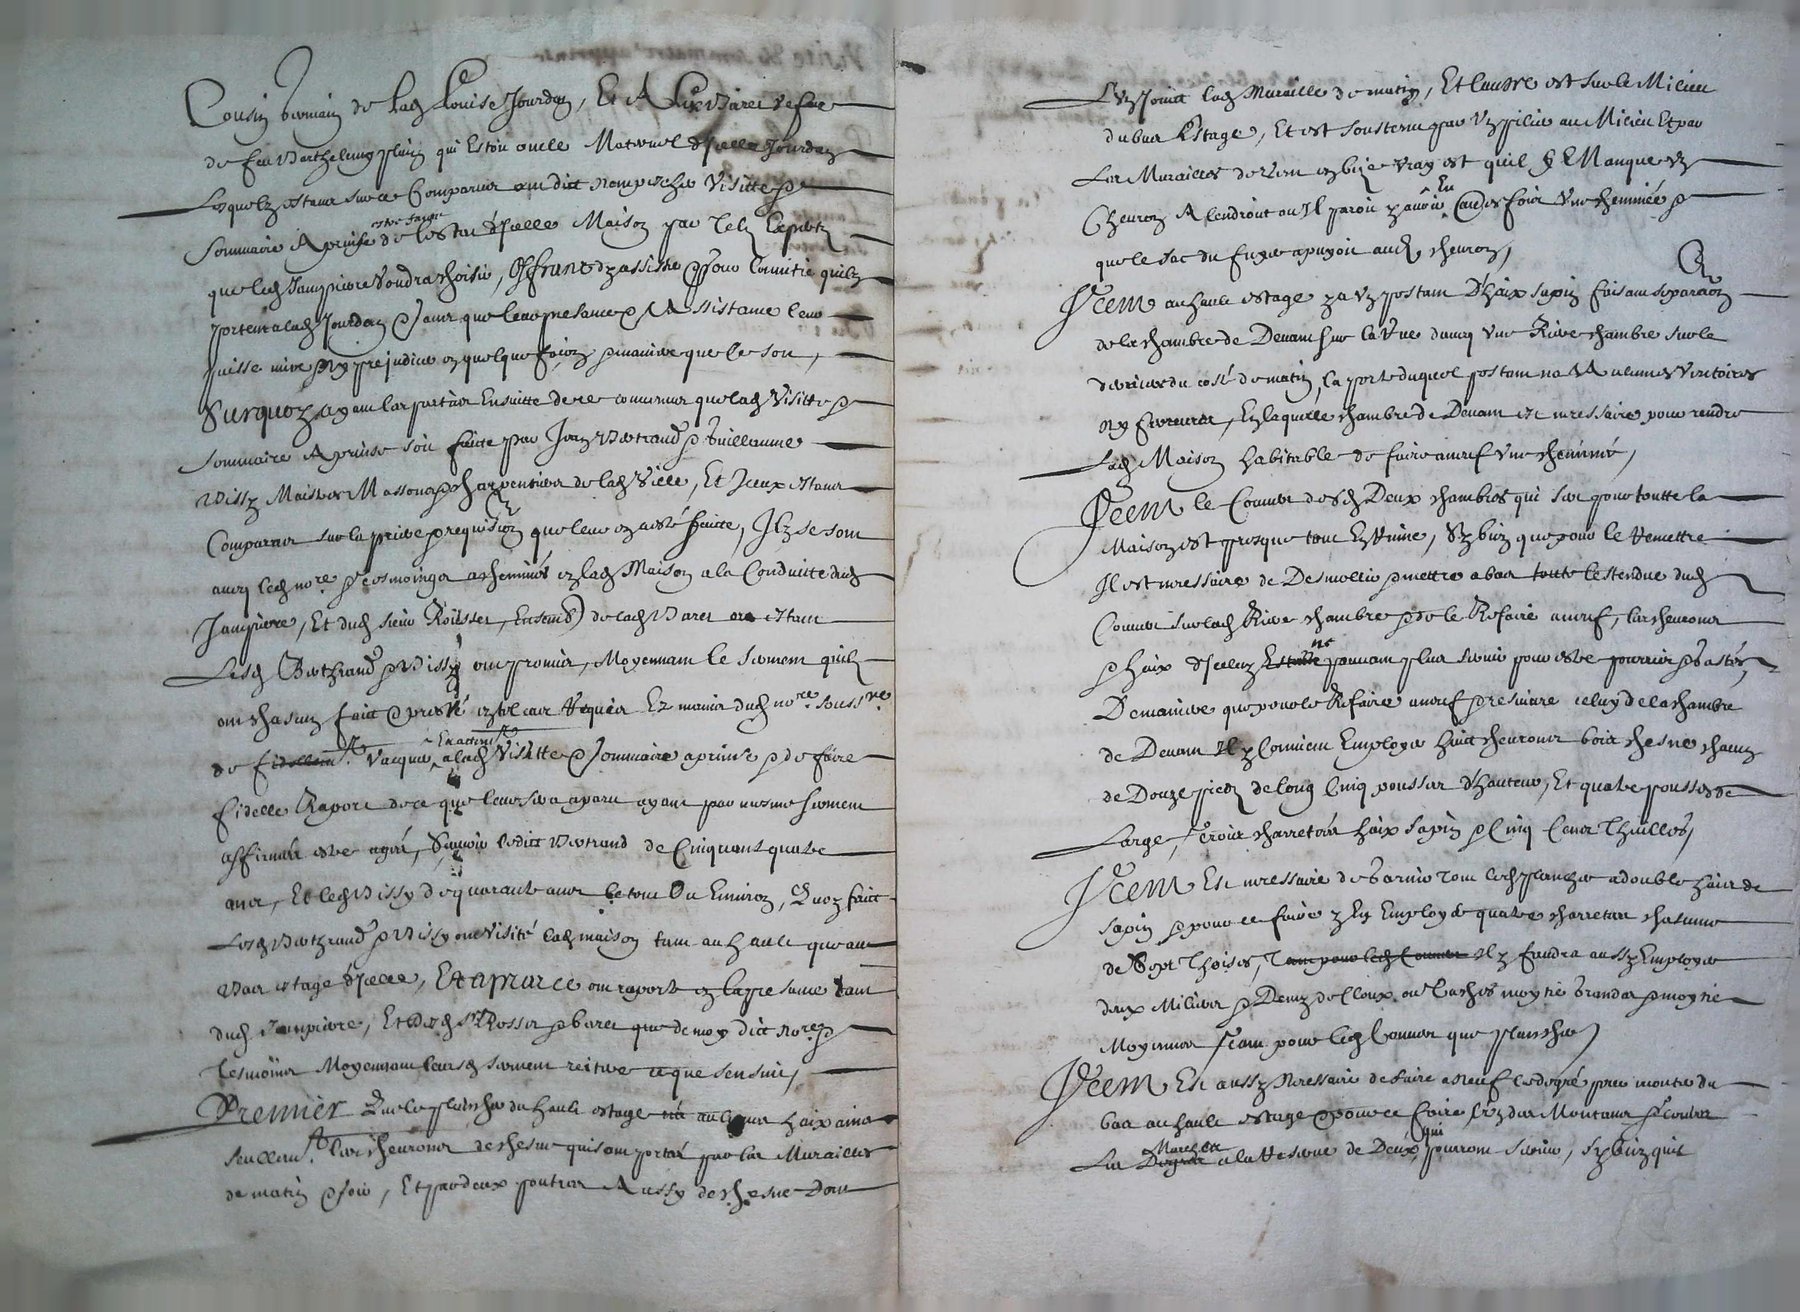 Cousin Germain de lad Louise Jourdan, Et A Lix Baret vefue
de feu Barthelemy plain qui Estoit oncle Maternel d'jcelle Jourdan
Lesquelz estans sur ce Comparus ont dict nempescher Visitte &
Sommaire Aprinse estre faicte de lestat d'jcelle Maison par telz Expertz
que led Janpierre voudra choisir, offrans dy assister pour lamitié quilz
portent a lad Jourdan & sans que leur presance & Assistance leur
puisse nuire ny prejudicier en quelque façon & maniere que ce soit,
Surquoy ayans les parties Ensuitte de ce conuenu que lad Visitte &
sommaire Aprinse soit faicte par Jean Bertrand & Guillaume
Vissy Maistres Massons & charpentiers de lad Ville, Et Jceux estans
Comparus sur la priere & requision que leur en a esté faicte, Ilz se sont
auec led no.re & tesmoings acheminés en lad Maison a la Conduitte dud
Janpierre, Et dud sieur Rousset, Ensemb) de lad Baret ou estans
Lesd Berthrand & Vissy ont promis, Moyennant le serment quilz
ont chascun faict & presté en tel cas Requis Ez mains dud no.re souss.né
de fidellem.t Vacquer, Enattem.t a lad Visitte & Sommaire aprinse & de faire
fidelle Raport de ce que leur sera aparu ayant par mesme serment
affirmé estre agés, Sçauoir ledict Bertrand de Cinquant quatre
ans, Et led Vissy de quarante ans le tout Ou Enuiron, Quoy faict
Lesd Berthrand & Vissy ont Visité lad maison tant au hault que au
bas estage d'jcelle, Et apres ce ont raporté en la presance tant
dud Janpierre, Et desd S.rs Rosset & baret que de moy dict no.re &
tesmoins Moyennant leursd serment reiteré ce que sensuit,
Premier Que le plancher du hault estage n'a aucuns haix ains
seullem.t les cheurons de chesne qui sont portés par les Murailles
de matin & soir, Et par deux poutres Aussy de chesne Dont
L'vn Joint lad Muraille de matin, Et lautre est sur le Milieu
du bas Estage, Et est soustenu par vn pilier au Milieu Et par
Les Murailles de vent et bize vray est quil y E Manque vn
Cheuron A lendroit ou Il paroit y auoir En au des foir vne cheminée &
que le sac du fuyer apuyoit aud cheuron,
Jtem au hault estage y a vn postam D'haix sapin faisant separaon
de la chambre de Deuant sur la Rue dauec vne Riere chambre sur le
derrier du costé de matin, la porte duquel postam na Aulcunes Ventoires
ny ferreures, En laquelle chambre de Deuant est necessaire pour rendre
Lad Maison habitable de faire a neuf vne cheminé,
Jtem le Couuert desd Deux chambres qui sert pour toutte la
Maison est presque tout En Ruine, Sy bien que pour le Remettre
Il est necessaire de Desmollir & mettre a bas toutte lestendue dud
Couuert sur lad Riere chambre & de le Refaire a neuf, les cheurons
& haix d'jceluy Estant ne pouuant plus seruir pour estre pourris & gastés,
De maniere que pour le Refaire a neuf & resuiure celuy de la chambre
de Deuant Il y Conuient Employer huict cheurons bois chesne chacun
de Douze piedz de long Cinq pousses d'hauteur, Et quatre pousses de
Large, Trois charretées haix sapin & Cinq Cens Thuilles,
Jtem Est necessaire de Garnir tout led plancher a double haix de
sapin & pour ce faire y En Employer quatre charretées chascune
de Sept Thoises, Tant pour led Couuert Il y faudra aussy Employer
deux Milliers & Demy de Cloux ou taches moytié brandes & moytié
Moyennes Tant pour led Couuert que plancher)
Jtem Est aussy Necessaire de faire a Neuf le degré pour monter du
bas au hault estage & pour ce faire l'vn des Montans & toutes
Les Degrés Marches a la Reserue de Deux, qui pourront seruir, sy bien quil